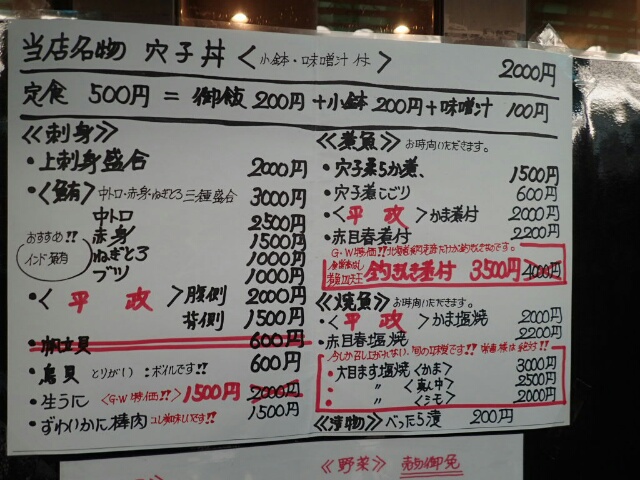 当店名物 穴子丼 <小鉢・味噌汁付> 2000円
定食 500円 = 御飯 200円 + 小鉢 200円 + 味噌汁 100円
≪刺身≫
・上刺身盛合 2000円
・<鮪> 中トロ・赤身・ねぎとろ 三種盛合 3000円
おすすめ!!
インド鮪
中トロ 2500円
赤身 1500円
ねぎとろ 1000円
ブツ 1000円
・<平政> 腹側 2000円
背側 1500円
・帆立貝 600円
・鳥貝 とりがい):ボイルです!! 600円
・生うに <G・W特価!!> 1500円 2000円
・ずわいかに棒肉 コレ美味しいです!! 1500円
≪煮魚≫ お時間いただきます。
・穴子柔らか煮、 1500円
・穴子煮こごり 600円
・<平政> かま煮付 2000円
・赤目春煮付 2200円
G・W特価!!
釣きんき煮付 3500円 4000円
≪焼魚≫ お時間いただきます。
・<平政> かま塩焼 2000円
・赤目春塩焼 2200円
今しか召し上がれない、旬の味覚です!!
・大目ます塩焼 <かま> 3000円
・ 〃 <真ん中> 2500円
・ 〃 <シモ> 2000円
≪漬物≫ べったら漬 200円
≪野菜≫ 売切御免